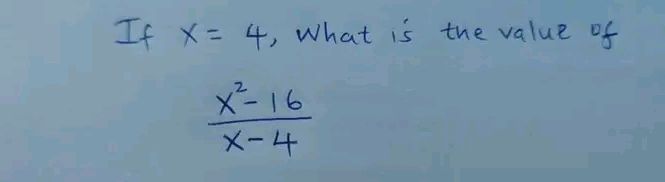 If x = 4, What is the value of
x²-16
x-4